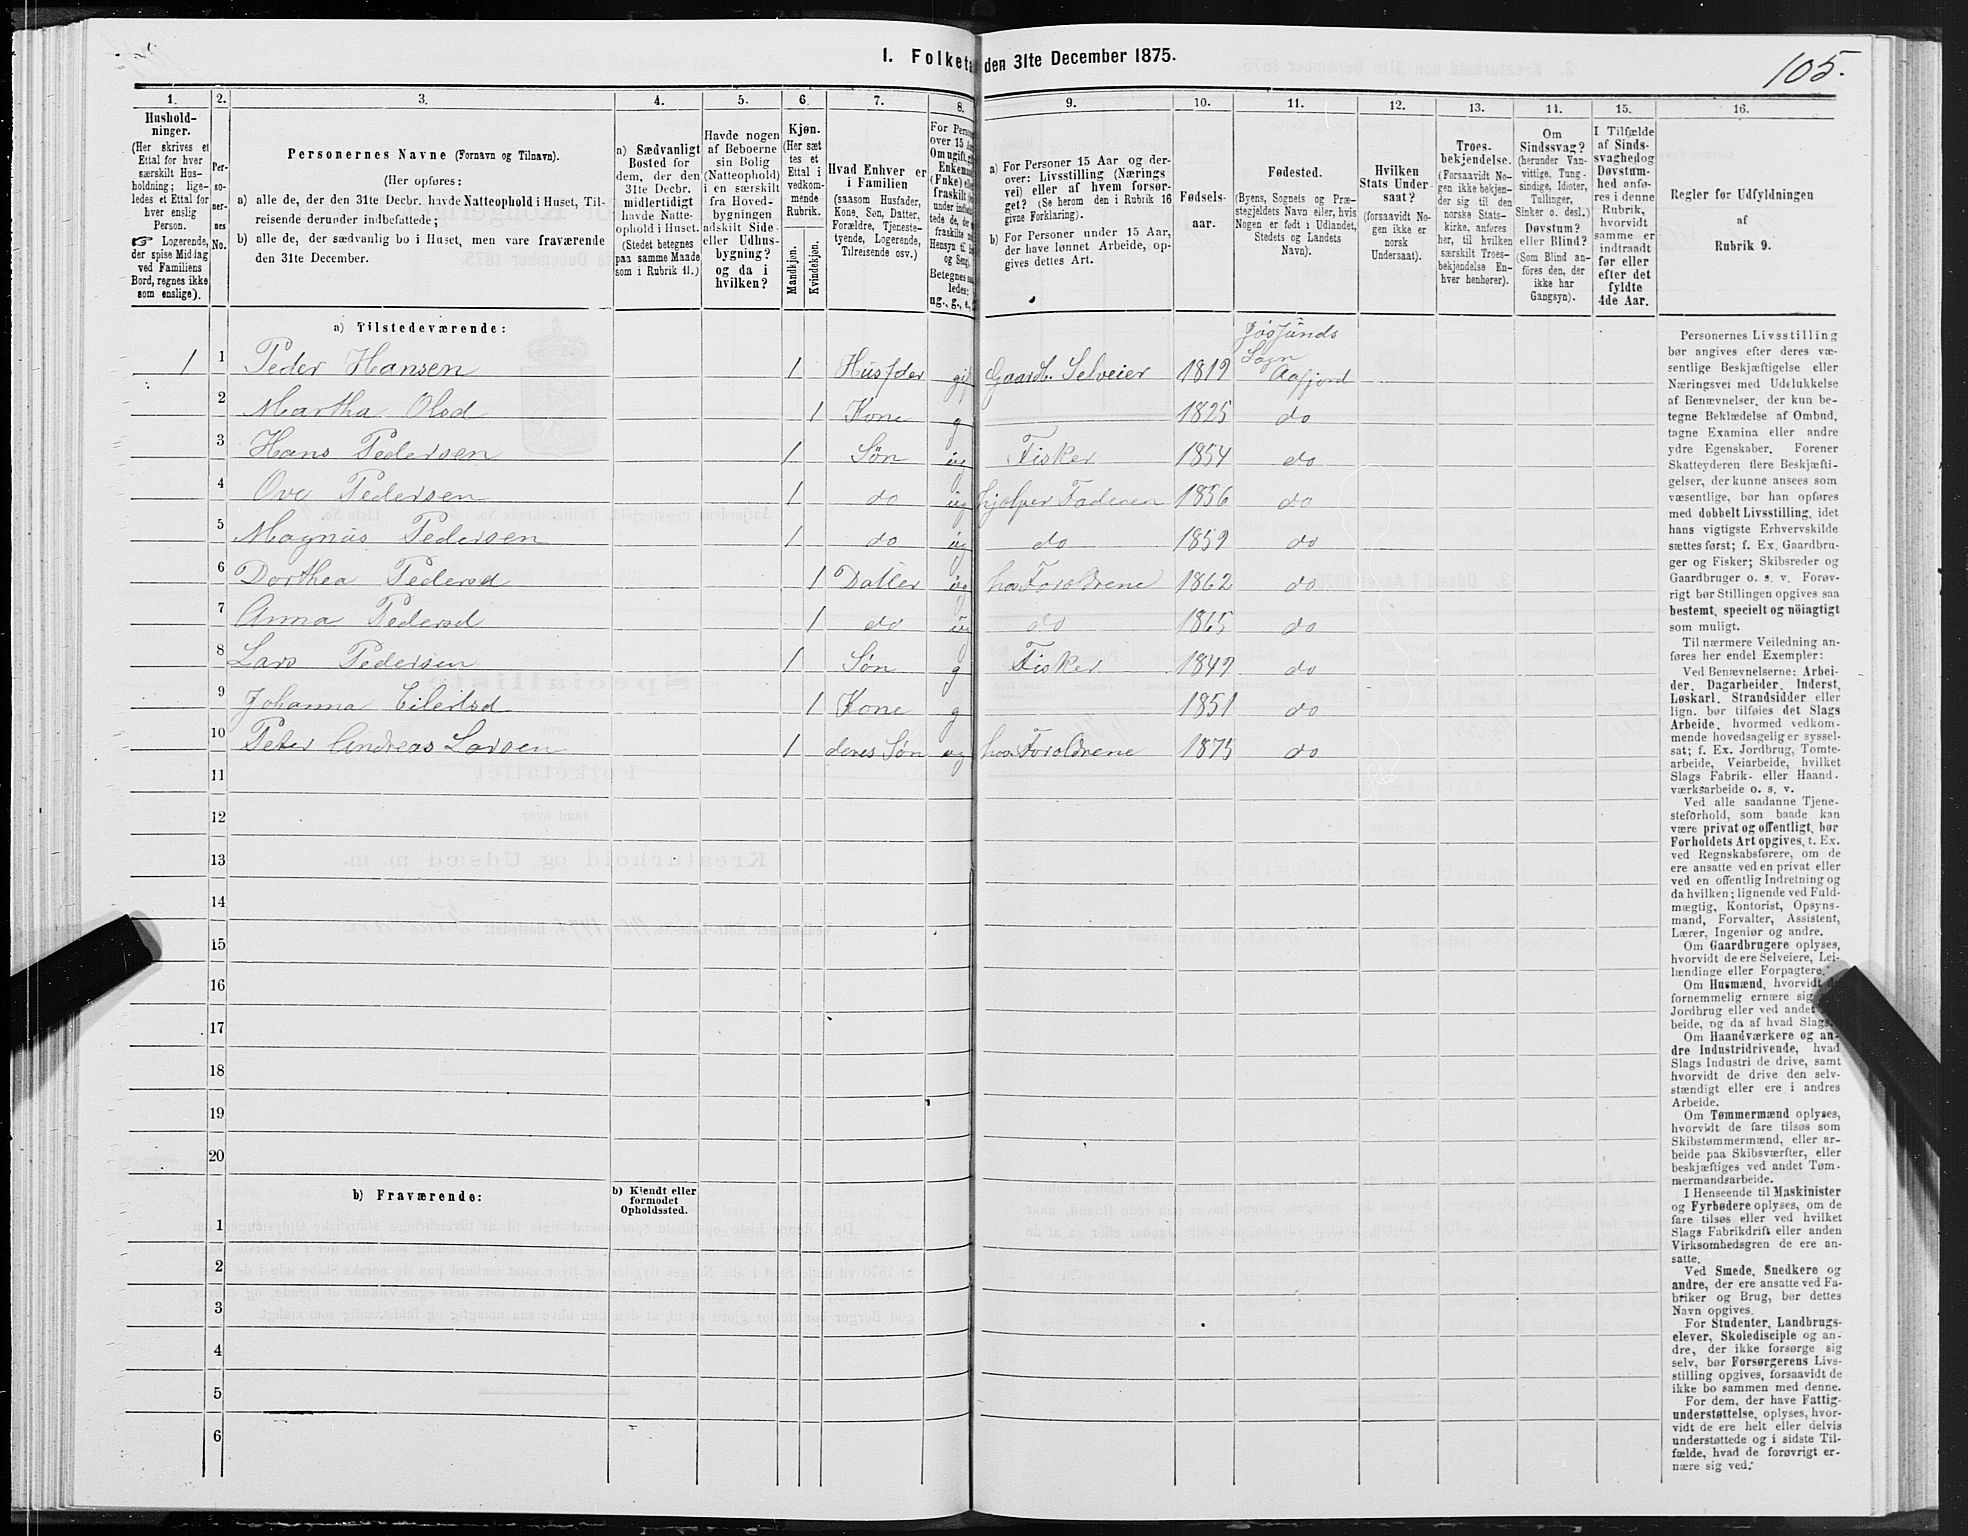 1. Folketa den 31te December 1875.
105.
1. 2. 3. 4. 5. 6. 7. 8. 9. 10. 11. 12. 13. 14. 15. 16.
Hushold-
ninger.
(Her skrives et
Ettal for hver
særskilt Hus-
holdning; lige-
ledes et Ettal for
hver enslig
Person.
☞ Logerende,
der spise Middag
ved Familiens
Bord, regnes ikke
som enslige).
Per-
so-
ner-
nes
No.
Personernes Navne (Fornavn og Tilnavn).
(Her opføres:
a) alle de, der den 31te Decbr. havde Natteophold i Huset, Til-
reisende derunder indbefattede;
b) alle de, der sædvanlig bo i Huset, men vare fraværende
den 31te December.
a) Sædvanligt
Bosted for
dem, der den
31te Decbr.
midlertidigt
havde Natte-
ophold i Huset.
(Stedet betegnes
paa samme Maade
som i Rubrik 11.)
Havde nogen
af Beboerne
sin Bolig
(Natteophold)
i en særskilt
fra Hoved-
bygningen
adskilt Side-
eller Udhus-
bygning?
og da i
hvilken?
Kjøn.
(Her sæt
tes et
Ettal i
vedkom-
mende
Rubrik.
Mandkjøn.
Kvindekjøn.
Hvad Enhver er
i Familien
(saasom Husfader,
Kone, Søn, Datter,
Forældre, Tjeneste-
tyende, Logerende,
Tilreisende osv.)
For Perso
over 15 A
Om ugift, g
Enkema
(Enke) el
fraskilt
Betegnes sa
ledes:
ug., g., e.,
a) For Personer 15 Aar og der-
over: Livsstilling (Nærings
vei) eller af hvem forsør-
get? (Se herom den i Rubrik 16
givne Forklaring).
b) For Personer under 15 Aar,
der have lønnet Arbeide, op-
gives dettes Art.
Fødsels-
aar.
Fødested.
(Byens, Sognets og Præ-
stegjeldets Navn eller, hvis
Nogen er født i Udlandet,
Stedets og Landets
Navn).
Hvilken
Stats Under-
saat?
(forsaavidt No-
gen ikke er
norsk
Undersaat).
Troes-
bekjendelse.
(Forsaavidt No-
gen ikke bekjen-
der sig til den
norske Stats-
kirke, anføres
her, til hvilken
særskilt Troes-
bekjendelse En-
hver henhører).
Om
Sindssvag?
(herunder Van-
vittige, Tung-
sindige, Idioter,
Tullinger,
Sinker o. desl.)
Døvstum?
eller Blind?
(Som Blind an-
føres den, der
ikke har
Gangsyn).
I Tilfælde
af Sinds-
svaghed og
Døvstum-
hed anfø-
res i denne
Rubrik,
hvorvidt
samme er
indtraadt
før eller
efter det
fyldte
4de Aar.
Regler for Udfyldningen
af
Rubrik 9.
a) Tilstedeværende:
Jøssunds
Sogn
1 1 Peder Hansen 1 Husfder gif Gaardb. Selveier 1819 Aafjord
2 Martha Olsd 1 Kone g 1825 do
3 Hans Pedersen 1 Søn ug Fisker 1854 do
4 Ove Pedersen 1 do ug hjelper Faderen 1856 do
5 Magnus Pedersen 1 do ug do 1859 do
6 Dorthea Pedersd 1 Datter ug hos Foroldrene 1862 do
7 Anna Pedersd 1 do ug do 1865 do
8 Lars Pedersen 1 Søn g Fisker 1849 do
9 Johanna Eilertsd 1 Kone g 1851 do
10 Peter Andreas Larsen 1 deres Søn ug hos Foroldrene 1875 do
11
12
13
14
15
16
17
18
19
20
b) Fraværende:
b) Kjendt eller
formodet
Opholdssted.
1
2
3
4
5
6
Personernes Livsstilling
bør angives efter deres væ-
sentlige Beskjæftigelse eller
Næringsvei med Udelukkelse
af Benævnelser, der kun be-
tegne Beklædelse af Ombud,
tagne Examina eller andre
ydre Egenskaber. Forener
Skatteyderen flere Beskjæfti-
gelser, der kunne ansees som
væsentlige, bør han opføres
med dobbelt Livsstilling, idet
hans vigtigste Erhvervskilde
sættes først; f. Ex. Gaardbru-
ger og Fisker; Skibsreder og
Gaardbruger o. s. v. Forøv-
rigt bør Stillingen opgives saa
bestemt, specielt og nöiagtigt
som muligt.
Til nærmere Veiledning an-
føres her endel Exempler:
Ved Benævnelserne: Arbei-
der, Dagarbeider, Inderst,
Løskarl, Strandsidder eller
lign. bør tilføies det Slags
Arbeide, hvormed vedkom-
mende hovedsagelig er syssel-
sat; f. Ex. Jordbrug, Tomte-
arbeide, Veiarbeide, hvilket
Slags Fabrik- eller Haand-
værksarbeide o. s. v.
Ved alle saadanne Tjene-
steforhold, som baade kan
være privat og offentligt, bør
Forholdets Art opgives, t. Ex.
ved Regnskabsførere, om de
ere ansatte ved en privat eller
ved en offentlig Indretning og
da hvilken; lignende ved Fuld-
mægtig, Kontorist, Opsyns-
mand, Forvalter, Assistent,
Lærer, Ingeniør og andre.
Om Gaardbrugere oplyses,
hvorvidt de ere Selveiere, Lei-
lændinge eller Forpagtere.
Om Husmænd, hvorvidt de
fornemmelig ernære sig
Jordbrug eller ved andet
beide, og da af hvad Slags.
Om Haandværkere og an-
dre Industridrivende, hvad
Slags Industri de drive, samt
hvorvidt de drive den selv-
stændigt eller ere i andres
Arbeide.
Om Tømmermænd oplyses,
hvorvidt de fare tilsøs som
Skibstømmermænd, eller ar-
beide paa Skibsværfter, eller
beskjæftiges ved andet Tøm-
mermandsarbeide.
I Henseende til Maskinister
og Fyrbødere oplyses, om de
fare tilsøs eller ved hvilket
Slags Fabrikdrift eller anden
Virksomhedsgren de ere an-
satte.
Ved Smede, Snedkere og
andre, der ere ansatte ved Fa-
briker og Brug, bør dettes
Navn opgives.
For Studenter, Landbrugs-
elever, Skoledisciple og an-
dre, der ikke forsørge sig
selv, bør Forsørgerens Livs-
stilling opgives, forsaavidt de
ikke bo sammen med denne.
For dem, der have Fattig-
understøttelse, oplyses, hvor-
vidt de ere helt eller delvis
understøttede og i sidste Til-
fælde, hvad de forøvrigt er-
nære sig ved.